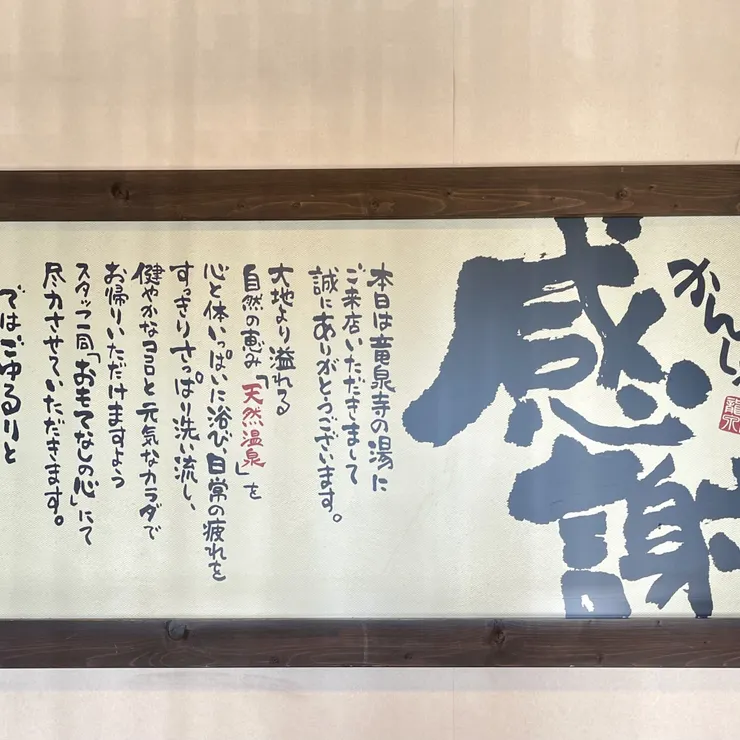 かんし
感謝
本日は竜泉寺の湯に
ご来店いただきまして
誠にありがとうございます。
大地より溢れる
自然の恵み「天然温泉」を
心と体いっぱいに浴び日常の疲れを
すっきりさっぱり洗い流し、
健やかなココロと元気なカラダで
お帰りいただけますよう
スタッフ一同「おもてなしの心」にて
尽力させていただきます。
ではごゆるりと